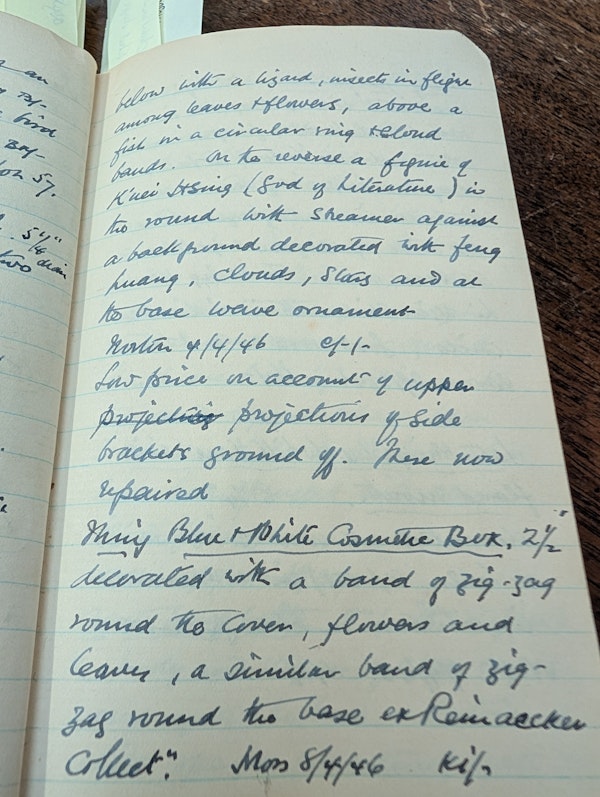 below with a lizard, insects in flight
among leaves & flowers, above a
fish in a circular ring & cloud
bands. On the reverse a figure of
K'uei Hsing (God of Literature) in
the round with streamer against
a background decorated with feng
huang, clouds, stars and at
the base wave ornament
Norton 4/4/46 c/-/-
Low price on account of upper
projecting projections of side
brackets ground off. These now
repaired
Ming Blue & White Cosmetic Box, 2½"
decorated with a band of zig-zag
round the cover, flowers and
leaves, a similar band of zig-
zag round the base ex Reinaecker
Collectn. Moss 8/4/46 Ki/-
an
bird
57.
5¼"
diam
two